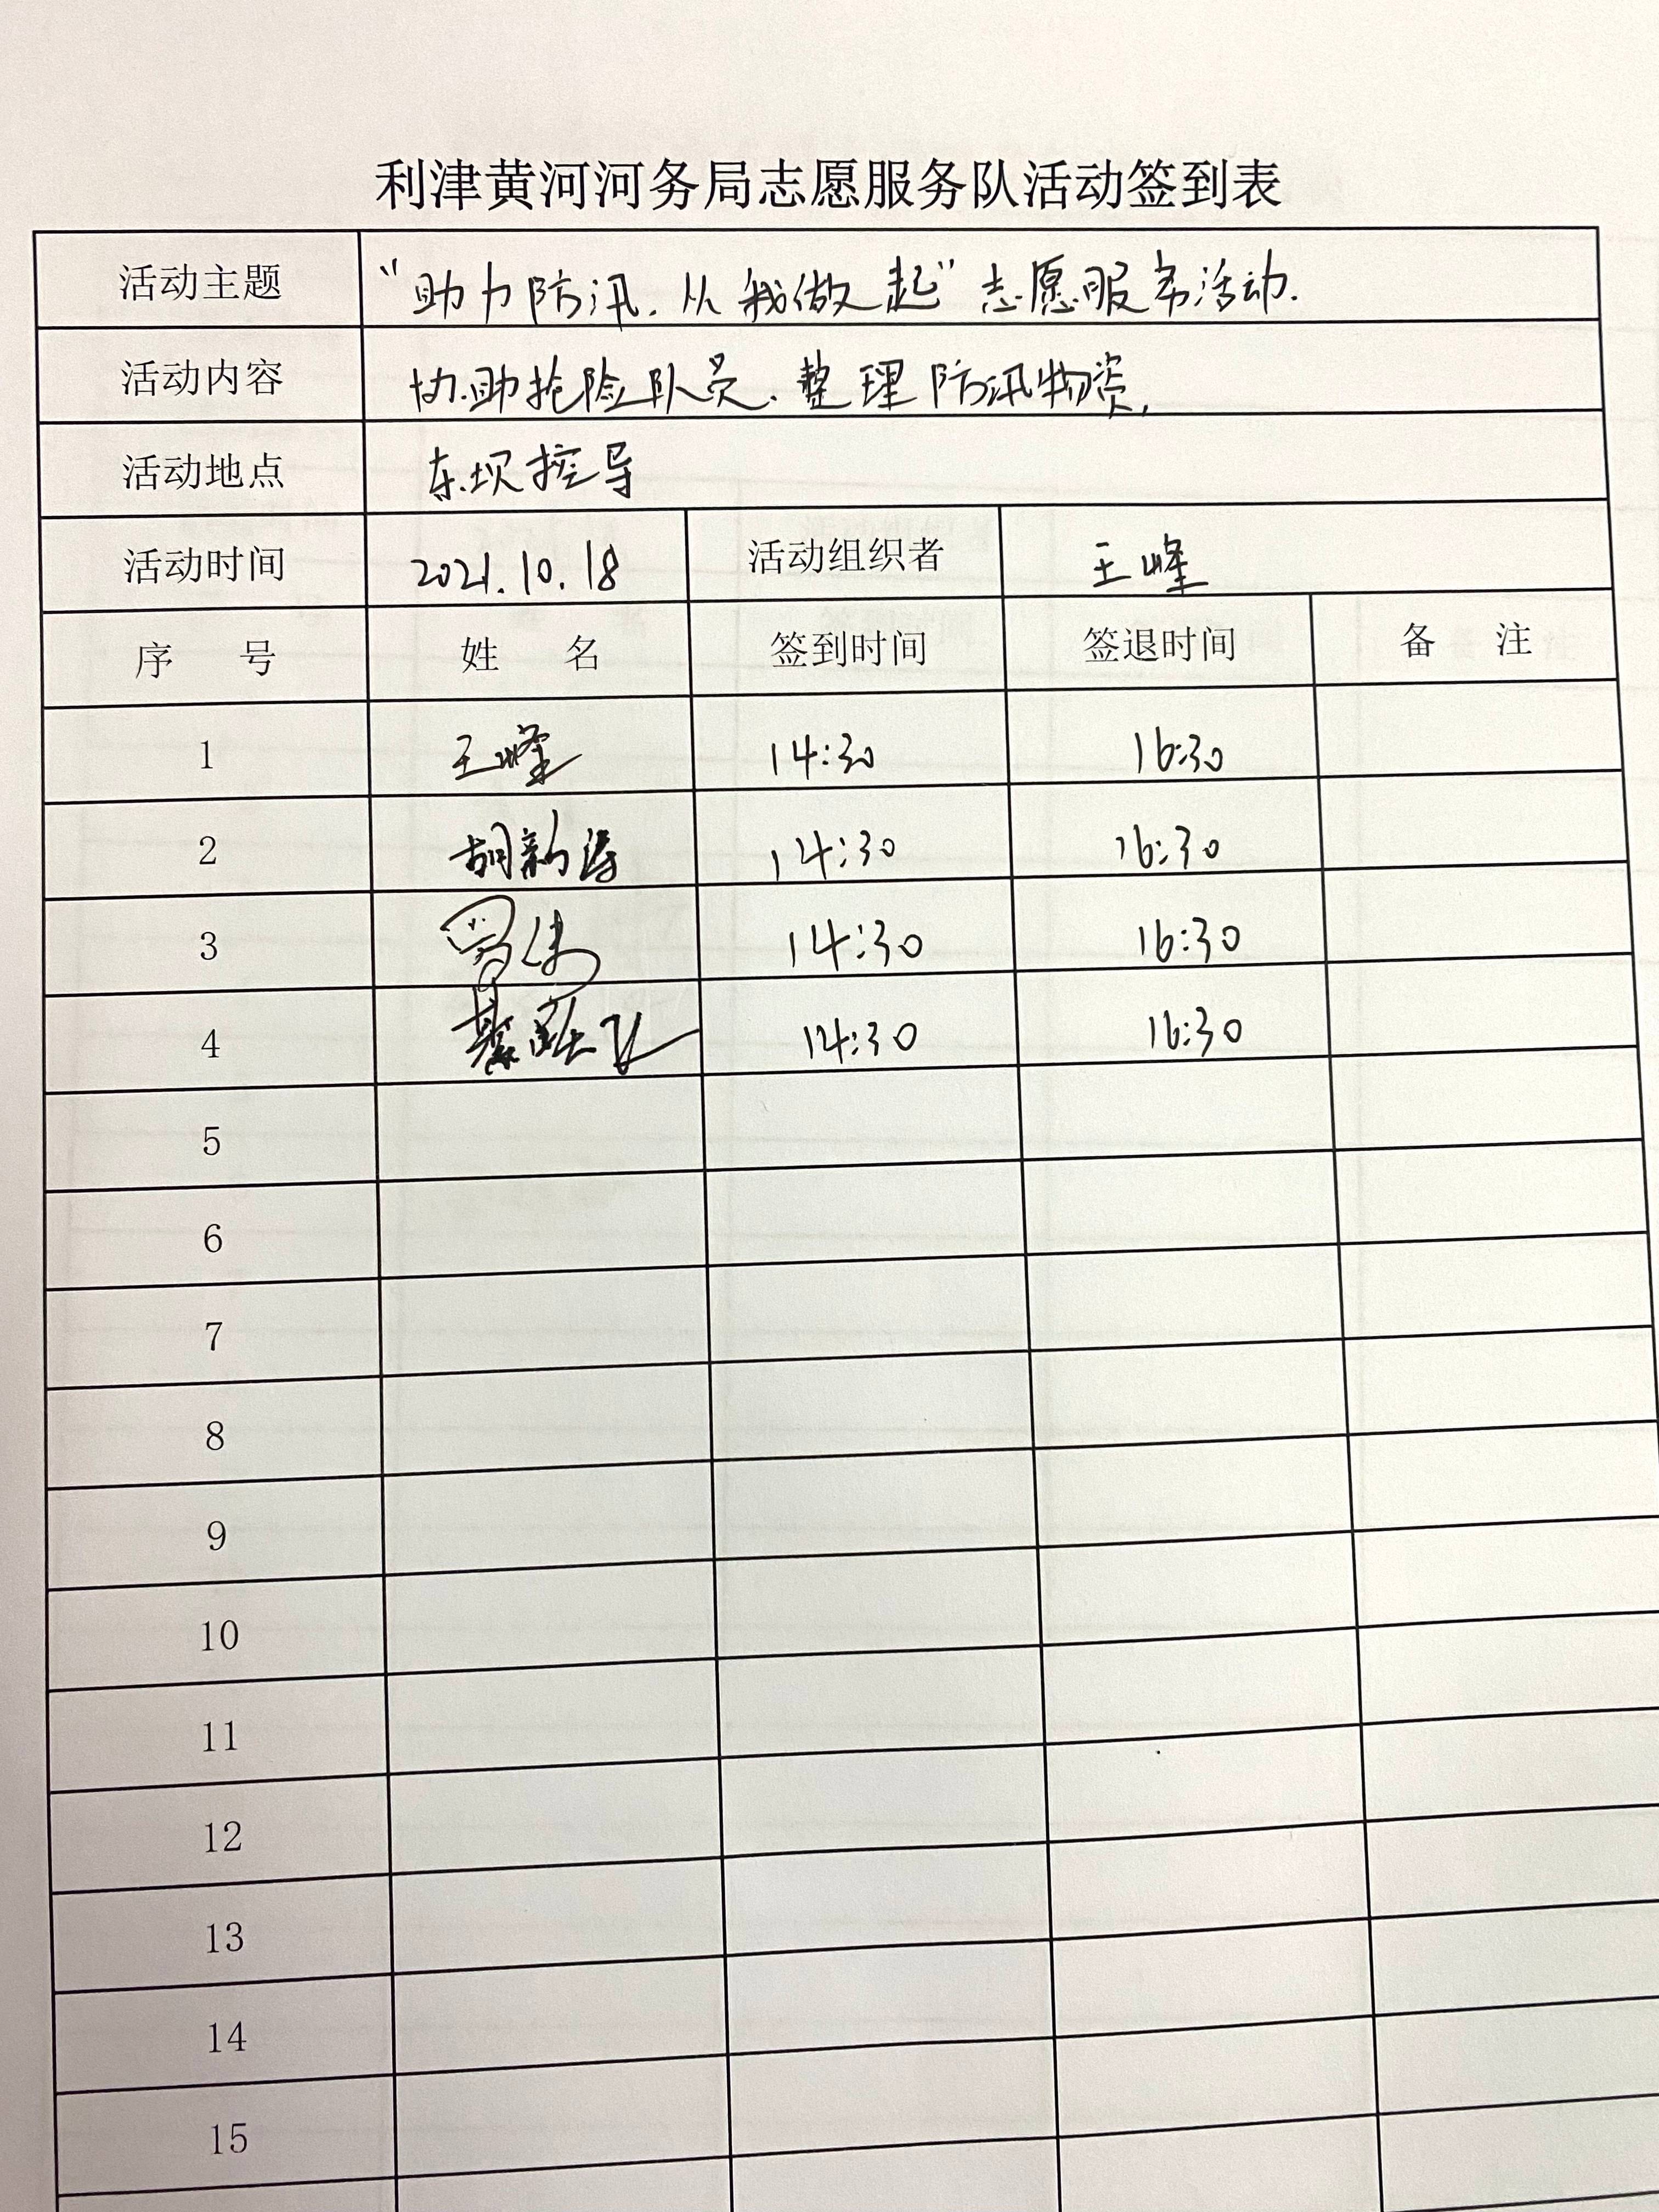 利津黄河河务局志愿服务队活动签到表
活动主题 “助力防汛.从我做起”志愿服务活动.
活动内容 协助抢险队员.整理防汛物资.
活动地点 东坝控导
活动时间 2021.10.18 活动组织者 王峰
序 号 姓 名 签到时间 签退时间 备 注
1 王峰 14:30 16:30
2 胡新涛 14:30 16:30
3 14:30 16:30
4 14:30 16:30
5
6
7
8
9
10
11
12
13
14
15